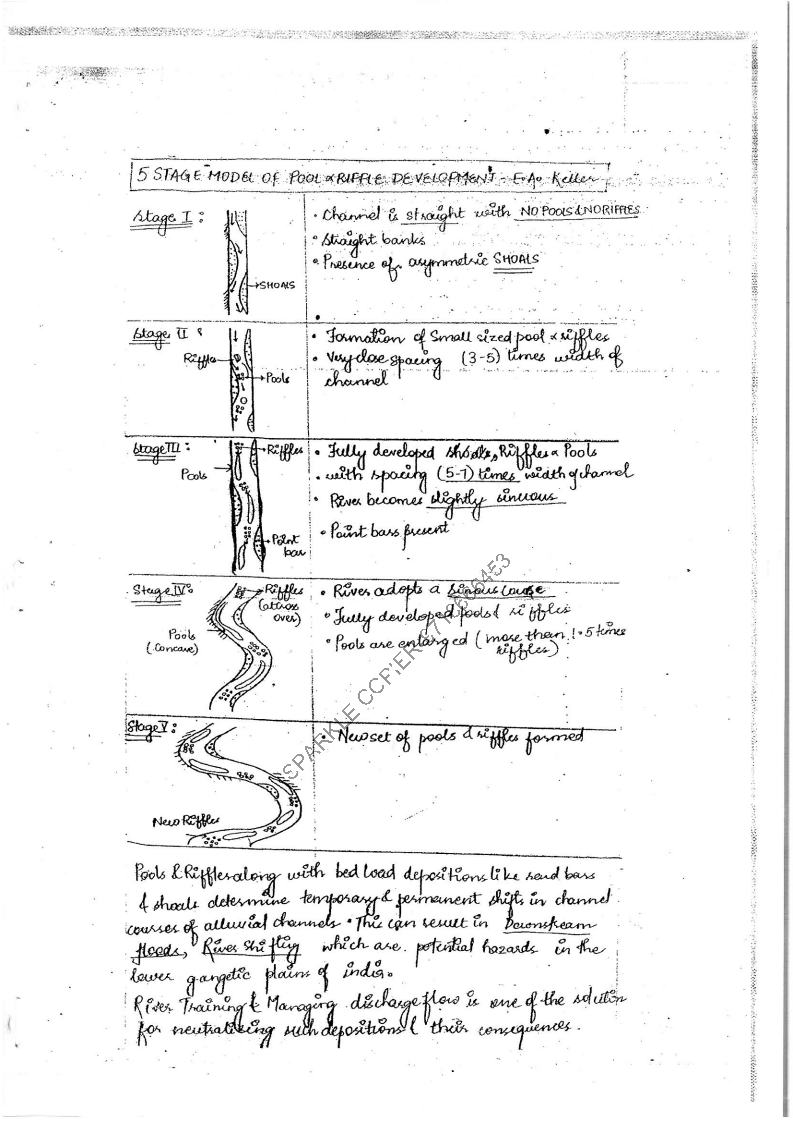 5 STAGE MODEL OF POOL & RIFFLE DEVELOPMENT - E.A. Keller
Stage I :
• Channel is straight with NO POOLS & NO RIFFLES
• Straight banks
• Presence of asymmetric SHOALS
SHOALS
Stage II :
Riffles
Pools
• Formation of Small sized pool & riffles
• Very close spacing (3-5) times width of
channel
Stage III :
Riffles
Pools
Point
bar
• Fully developed shoals, Riffles & Pools
• with spacing (5-7) times width of channel
• River becomes slightly sinuous
• Point bars present
Stage IV :
Riffles
(across
over)
Pools
(Concave)
• River adopts a sinous course
• Fully developed pools & riffles
• Pools are enlarged (more than 1.5 times
riffles)
Stage V :
New Riffles
• New set of pools & riffles formed
SPARKLE CCPIER
Pools & Riffles along with bed load depositions like sand bars
& shoals determine temporary & permanent shifts in channel
courses of alluvial channels. This can result in Downstream
floods, River Shifting which are potential hazards in the
lower gangetic plains of india.
River Training & Managing discharge flow is one of the solution
for neutralizing such depositions & their consequences.